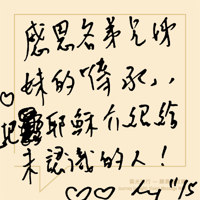 感恩各弟兄姊
妹的傳承,,
把耶穌介紹給
未認識的人!
11/5